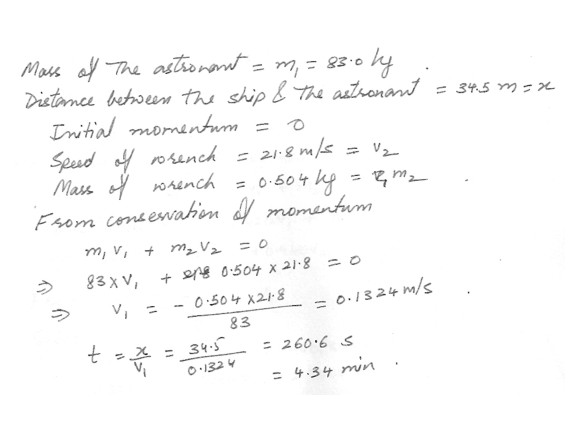 Mass of The astronant = m₁ = 83.0 kg .
Distance between the ship & The astronant = 34.5 m = x
Initial momentum = 0
Speed of wrench = 21.8 m/s = v₂
Mass of wrench = 0.504 kg = m₂ .
From conservation of momentum
m₁ v₁ + m₂ v₂ = 0
⇒ 83 × v₁ + 0.504 × 21.8 = 0
⇒ v₁ = - 0.504 × 21.8 / 83 = 0.1324 m/s .
t = x / v₁ = 34.5 / 0.1324 = 260.6 s
= 4.34 min .